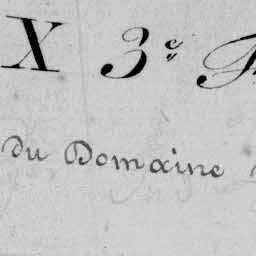 X 3e
du Domaine